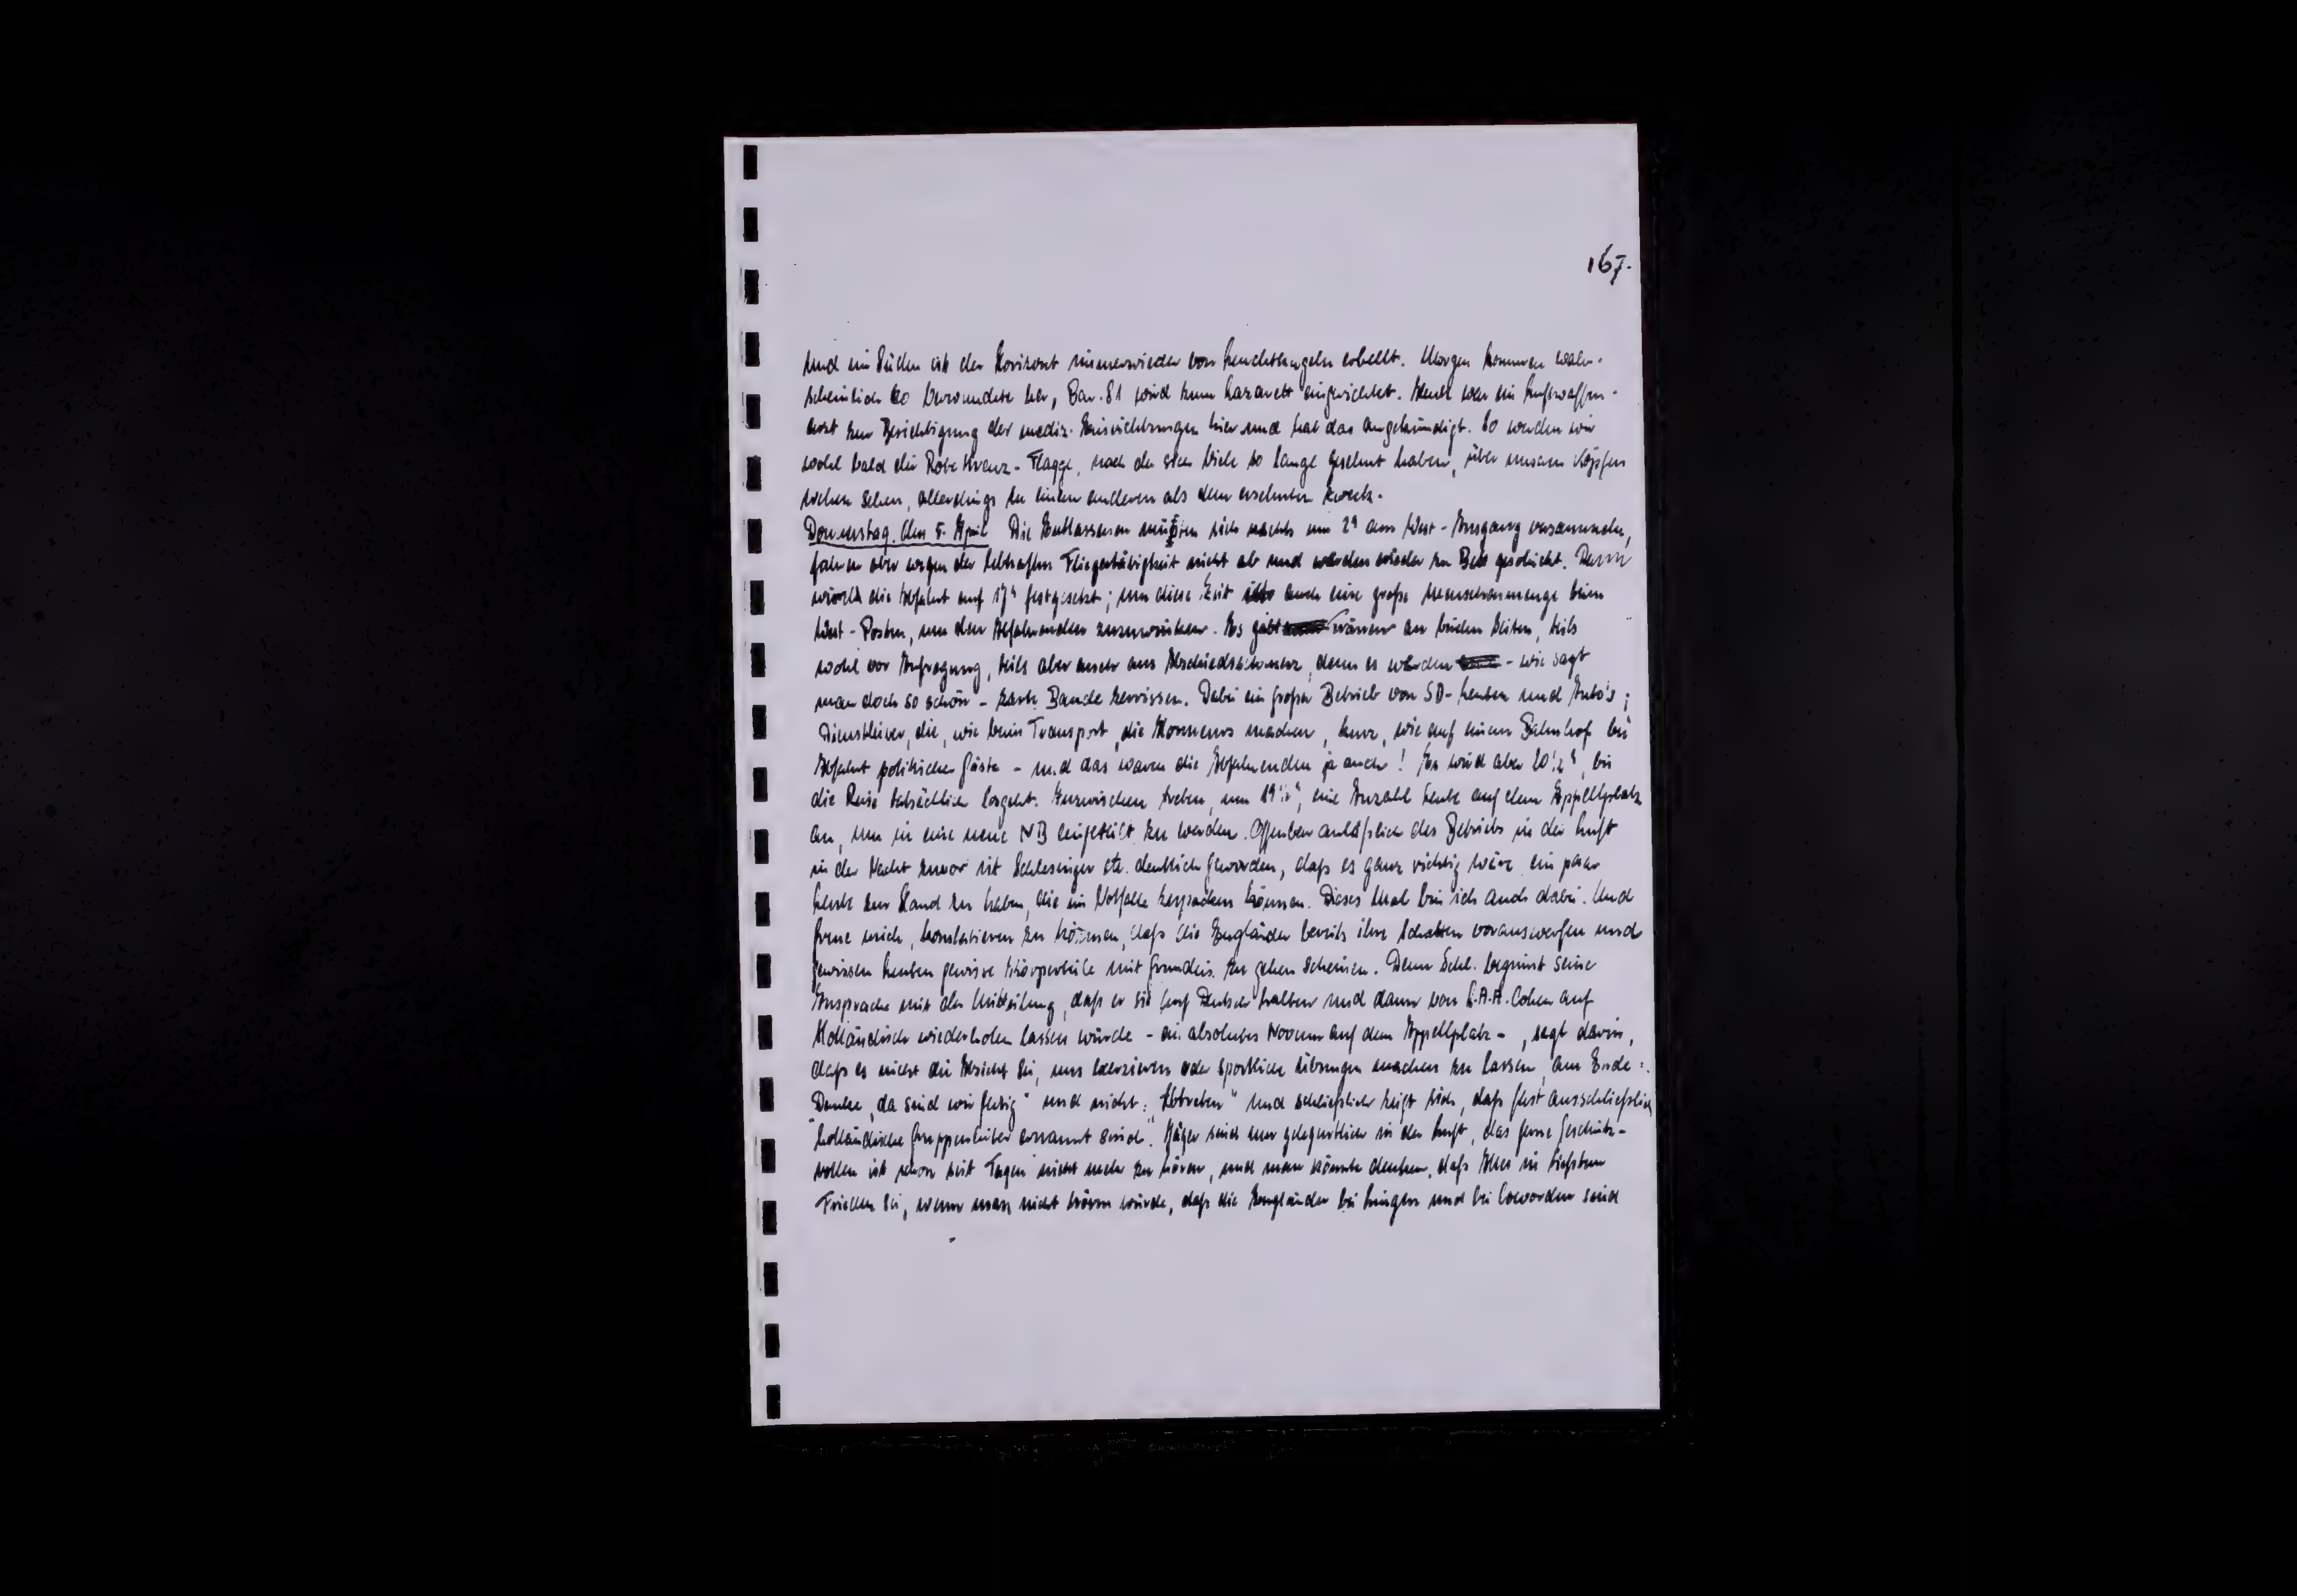 167.
und im Süden ist der Horizont immerwieder von Leuchtkugeln erhellt. Morgen kommen wahr-
scheinlich 60 Verwundete her, Bar. 81 wird zum Lazarett eingerichtet. Heute war ein Luftwaffen-
arzt zur Besichtigung der mediz. Einrichtungen hier und hat das angekündigt. So werden wir
wohl bald die Rote Kreuz-Flagge, nach der sich Viele so lange gesehnt haben, über unseren Köpfen
wehen sehen, allerdings zu einem anderen als dem ersehnten Zweck.
Donnerstag, den 5. April Die Entlassenen müßen sich nachts um 2h am West-Ausgang versammeln,
fahren aber wegen der lebhaften Fliegertätigkeit nicht ab und werden wieder zu Bett geschickt. Dann
wird die Abfahrt auf 17h festgesetzt; um diese Zeit ist auch eine große Menschenmenge beim
West-Posten, um den Abfahrenden zuzuwinken. Es gibt Tränen an beiden Seiten, teils
wohl vor Aufregung, teils aber auch aus Abschiedsschmerz, denn es werden - wie sagt
man doch so schön - zarte Bande zerrissen. Dabei ein großer Betrieb von SD-Leuten und Auto's;
Dienstleiter, die, wie beim Transport, die Honneurs machen, kurz, wie auf einem Bahnhof bei
Abfahrt politischer Gäste - und das waren die Abfahrenden ja auch! Es wird aber 20 1/2 h, bis
die Reise tatsächlich losgeht. Inzwischen treten, um 19 1/2 h, eine Anzahl Leute auf dem Appellplatz
an, um in eine neue NB eingeteilt zu werden. Offenbar anläßlich des Betriebs in der Luft
in der Nacht zuvor ist Schlesinger etc. deutlich geworden, daß es ganz richtig wäre ein paar
Leute zur Hand zu haben, die im Notfalle zupacken können. Dieses Mal bin ich auch dabei. Und
freue mich, konstatieren zu können, daß die Engländer bereits ihre Schatten vorauswerfen und
gewissen Leuten gewisse Körperteile mit Grundeis zu gehen scheinen. Denn Schl. beginnt seine
Ansprache mit der Mitteilung, daß er sie auf Deutsch halten und dann von Cohen auf
Holländisch wiederholen lassen würde - ein absolutes Novum auf dem Appellplatz -, sagt darin,
daß es nicht die Absicht sei, uns exerzieren oder sportliche Übungen machen zu lassen, am Ende:
"Danke, da sind wir fertig" und nicht: "Abtreten" und schließlich zeigt sich, daß fast ausschließlich
"holländische Gruppenleiter ernannt sind". Jäger sind nur gelegentlich in der Luft, das ferne Geschütz-
rollen ist schon seit Tagen nicht mehr zu hören, und man könnte denken, daß Alles in tiefstem
Frieden sei, wenn man nicht hören würde, daß die Engländer bei Lingen und bei Coevorden sind